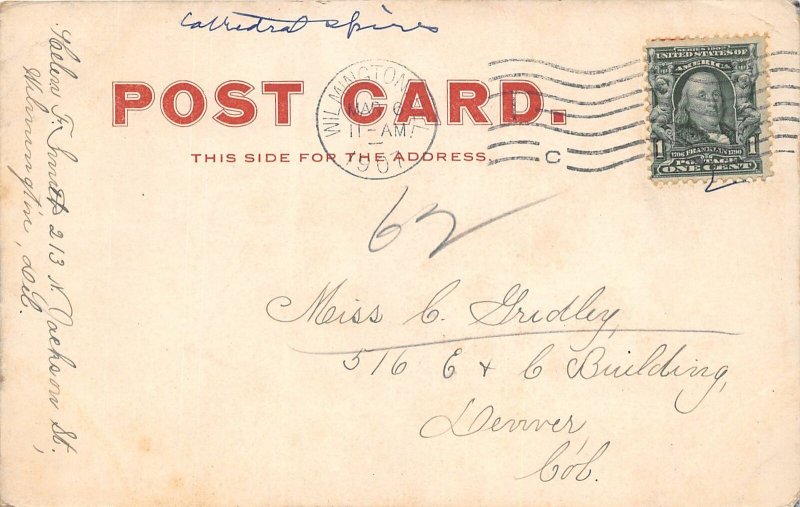 Cathedral spires
POST CARD.
THIS SIDE FOR THE ADDRESS.
WILMINGTON
MAR 6
11-AM
1907
C
SERIES 1902
UNITED STATES OF
AMERICA
1 1
1706 FRANKLIN 1790
POSTAGE
ONE CENT
62
Miss C. Gridley,
516 E & C Building,
Denver,
Col.
Helen F. 213 N. Jackson St.,
Wilmington, Del.